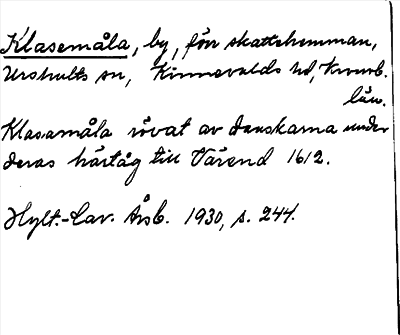 Klasemåla, by, förr skattehemman,
Urshults sn, Kinnevalds hd, Kronb.
län.
Klasamåla rövat av danskarna under
deras härtåg till Värend 1612.
Hylt.-Cav. Årsb. 1930, s. 244.